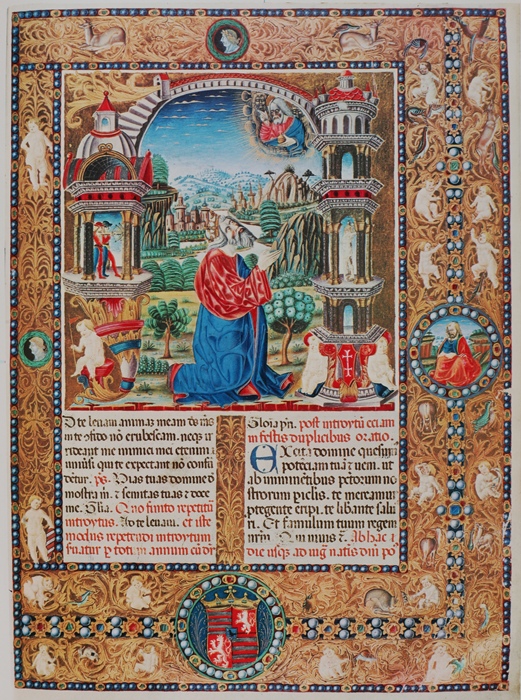 D te leuaui animam meam ds ms
in te cōfido nō erubescam. neqʒ ir
rideant me inimici mei etenim u
niuersi qui te expectant nō confū
detur. ps. Uias tuas domine d
mostra m. ⁊ semitas tuas e doce
me. Glia. Quo finito repetitu
introytus. Ad te leuaui. et iste
modus repetendi introytum
suatur p totū annum cū di
Gloia pri. post introytū eciam
in festis duplicibus oratio.
Excita domine quesum
potēciam tuā ⁊ ueni. ut
ab imminentibus pctorum no
strorum piclis. te mereamur
ptegente eripi. te libante salua
ri. Et famulum tuum regem
nrm Ab hac
die usqʒ ad uig natis dni po